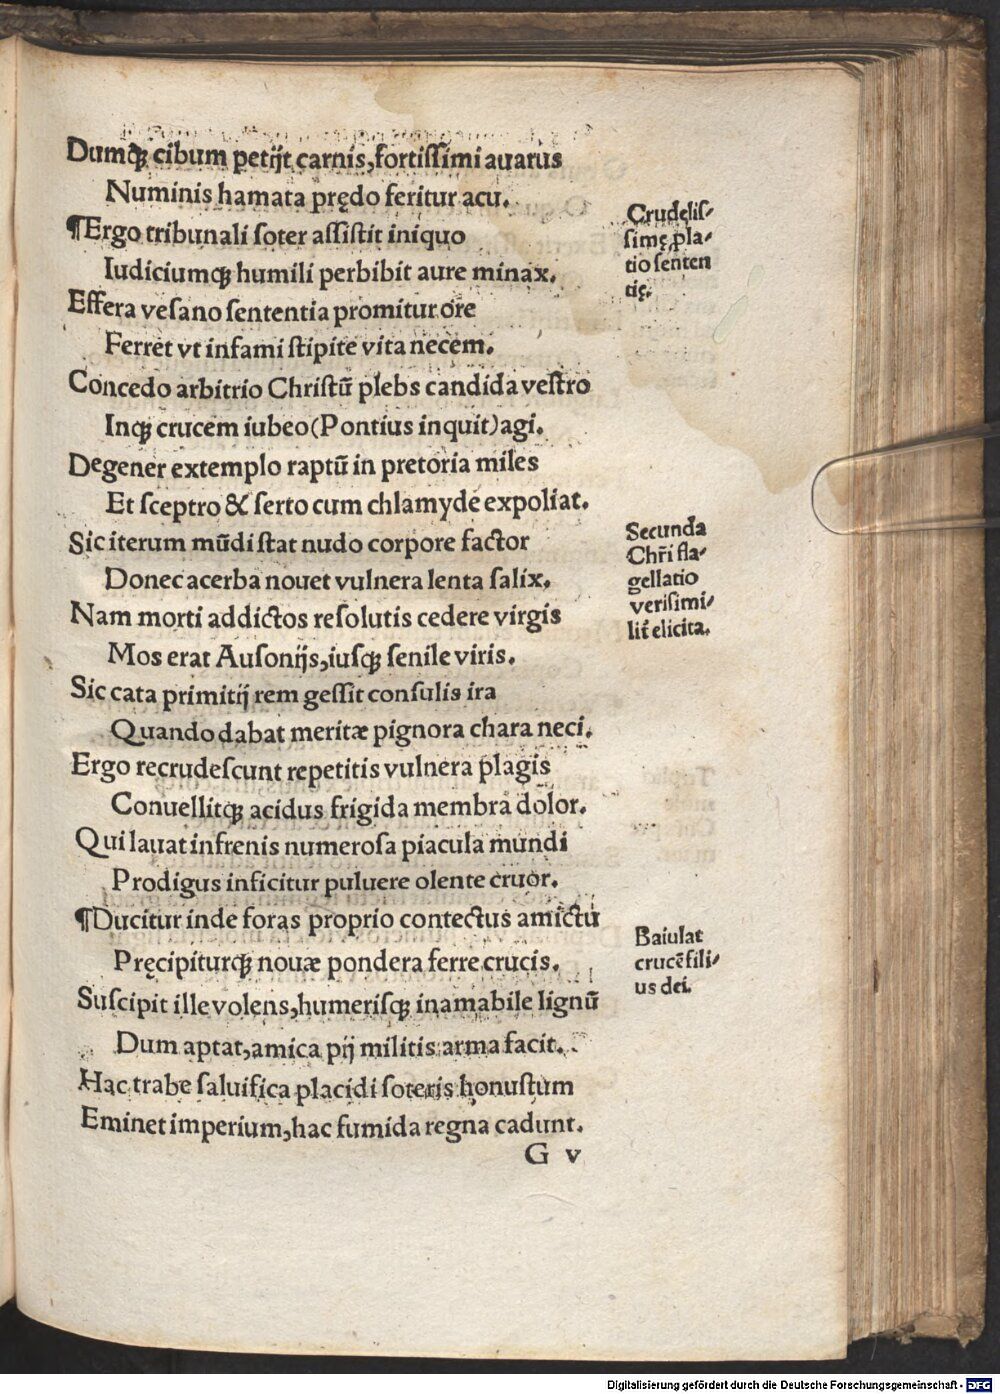 Dumqꝫ cibum petijt carnis,fortissimi auarus
Numinis hamata prędo feritur acu.
¶Ergo tribunali soter assistit iniquo
Iudiciumqꝫ humili perbibit aure minax.
Effera vesano sententia promitur ore
Ferret vt infami stipite vita necem.
Concedo arbitrio Christū plebs candida vestro
Inqꝫ crucem iubeo(Pontius inquit)agi.
Degener extemplo raptū in pretoria miles
Et sceptro & serto cum chlamyde expoliat.
Sic iterum mūdi stat nudo corpore factor
Donec acerba nouet vulnera lenta salix.
Nam morti addictos resolutis cedere virgis
Mos erat Ausonijs,iusqꝫ senile viris.
Sic cata primitij rem gessit consulis ira
Quando dabat meritæ pignora chara neci.
Ergo recrudescunt repetitis vulnera plagis
Conuellitqꝫ acidus frigida membra dolor.
Qui lauat infrenis numerosa piacula mundi
Prodigus inficitur puluere olente cruor.
¶Ducitur inde foras proprio contectus amictu
Pręcipiturqꝫ nouæ pondera ferre crucis.
Suscipit ille volens,humerisqꝫ inamabile lignū
Dum aptat,amica pij militis arma facit.
Hac trabe saluifica placidi soteris honustum
Eminet imperium,hac fumida regna cadunt.
G v
Crudelis-
simę pla-
tio senten
tię.
Secunda
Chr̄i fla-
gellatio
verisimi-
lit̄ elicita.
Baiulat
crucē fili-
us dei.
Digitalisierung gefördert durch die Deutsche Forschungsgemeinschaft - DFG